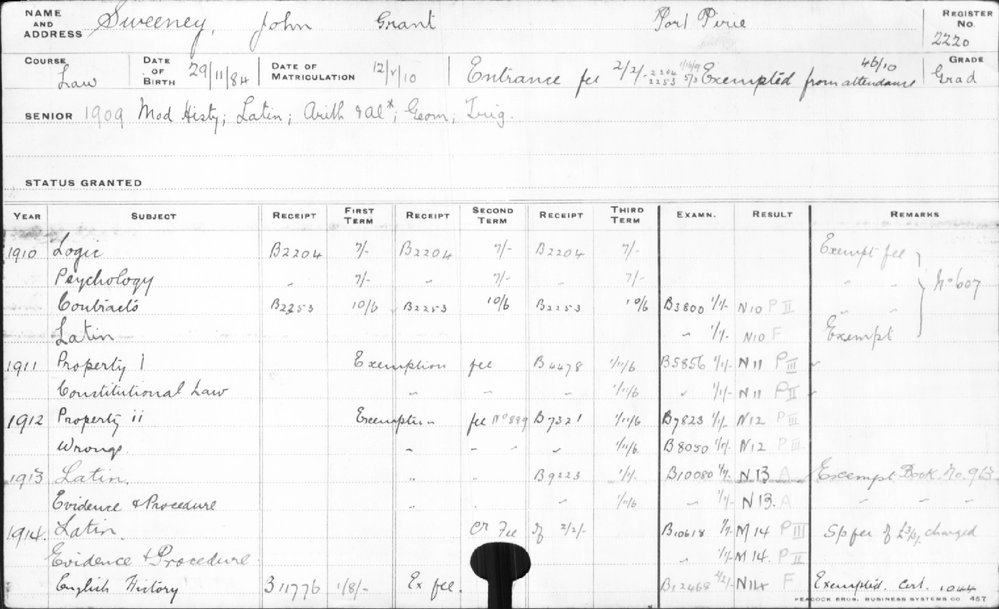 NAME AND ADDRESS Sweeney, John Grant Port Pirie REGISTER No. 2220
COURSE Law DATE OF BIRTH 29/11/84 DATE OF MATRICULATION 12/V/10 Entrance fee 2/2/- 2204 2253 Exempted from attendance 46/10 GRADE Grad
SENIOR 1909 Mod Histy; Latin; Arith & al*; Geom; Trig.
STATUS GRANTED
YEAR SUBJECT RECEIPT FIRST TERM RECEIPT SECOND TERM RECEIPT THIRD TERM EXAMN. RESULT REMARKS
1910 Logic B2204 7/- B2204 7/- B2204 7/- Exempt fee
Psychology " 7/- " 7/- " 7/- " " No 607
Contracts B2253 10/6 B2253 10/6 B2253 10/6 B3800 1/1/- N10 P II " "
Latin " 1/1/- N10 F Exempt
1911 Property I Exemption fee B4478 1/11/6 B5856 1/1/- N11 P III "
Constitutional Law " " " 1/11/6 " 1/1/- N11 P II "
1912 Property ii Exemption fee No 899 B7321 1/11/6 B7823 1/1/- N12 P III
Wrongs " " " 1/11/6 B8050 1/1/- N12 P III
1913 Latin. " " B9223 1/1/- B10080 1/1/- N13 A Exempt Book. No. 913
Evidence & Procedure " " " 1/11/6 " 1/1/- N13. A " " "
1914. Latin. Cr Fee of 2/2/- B10618 1/1/- M14 P III Sp fee of £3/3/- charged
Evidence & Procedure. " 1/1/- M14. P II
English History B11776 1/8/- Ex fee. B12468 2/2/- N14 F Exempted. Cert. 1044
PEACOCK BROS. BUSINESS SYSTEMS CO 457